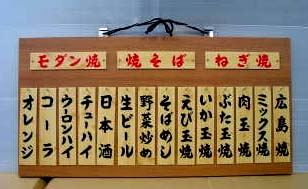 モダン焼
焼そば
ねぎ焼
広島焼
ミックス焼
肉玉焼
ぶた玉焼
いか玉焼
えび玉焼
そばめし
野菜炒め
生ビール
日本酒
チューハイ
ウーロンハイ
コーラ
オレンジ